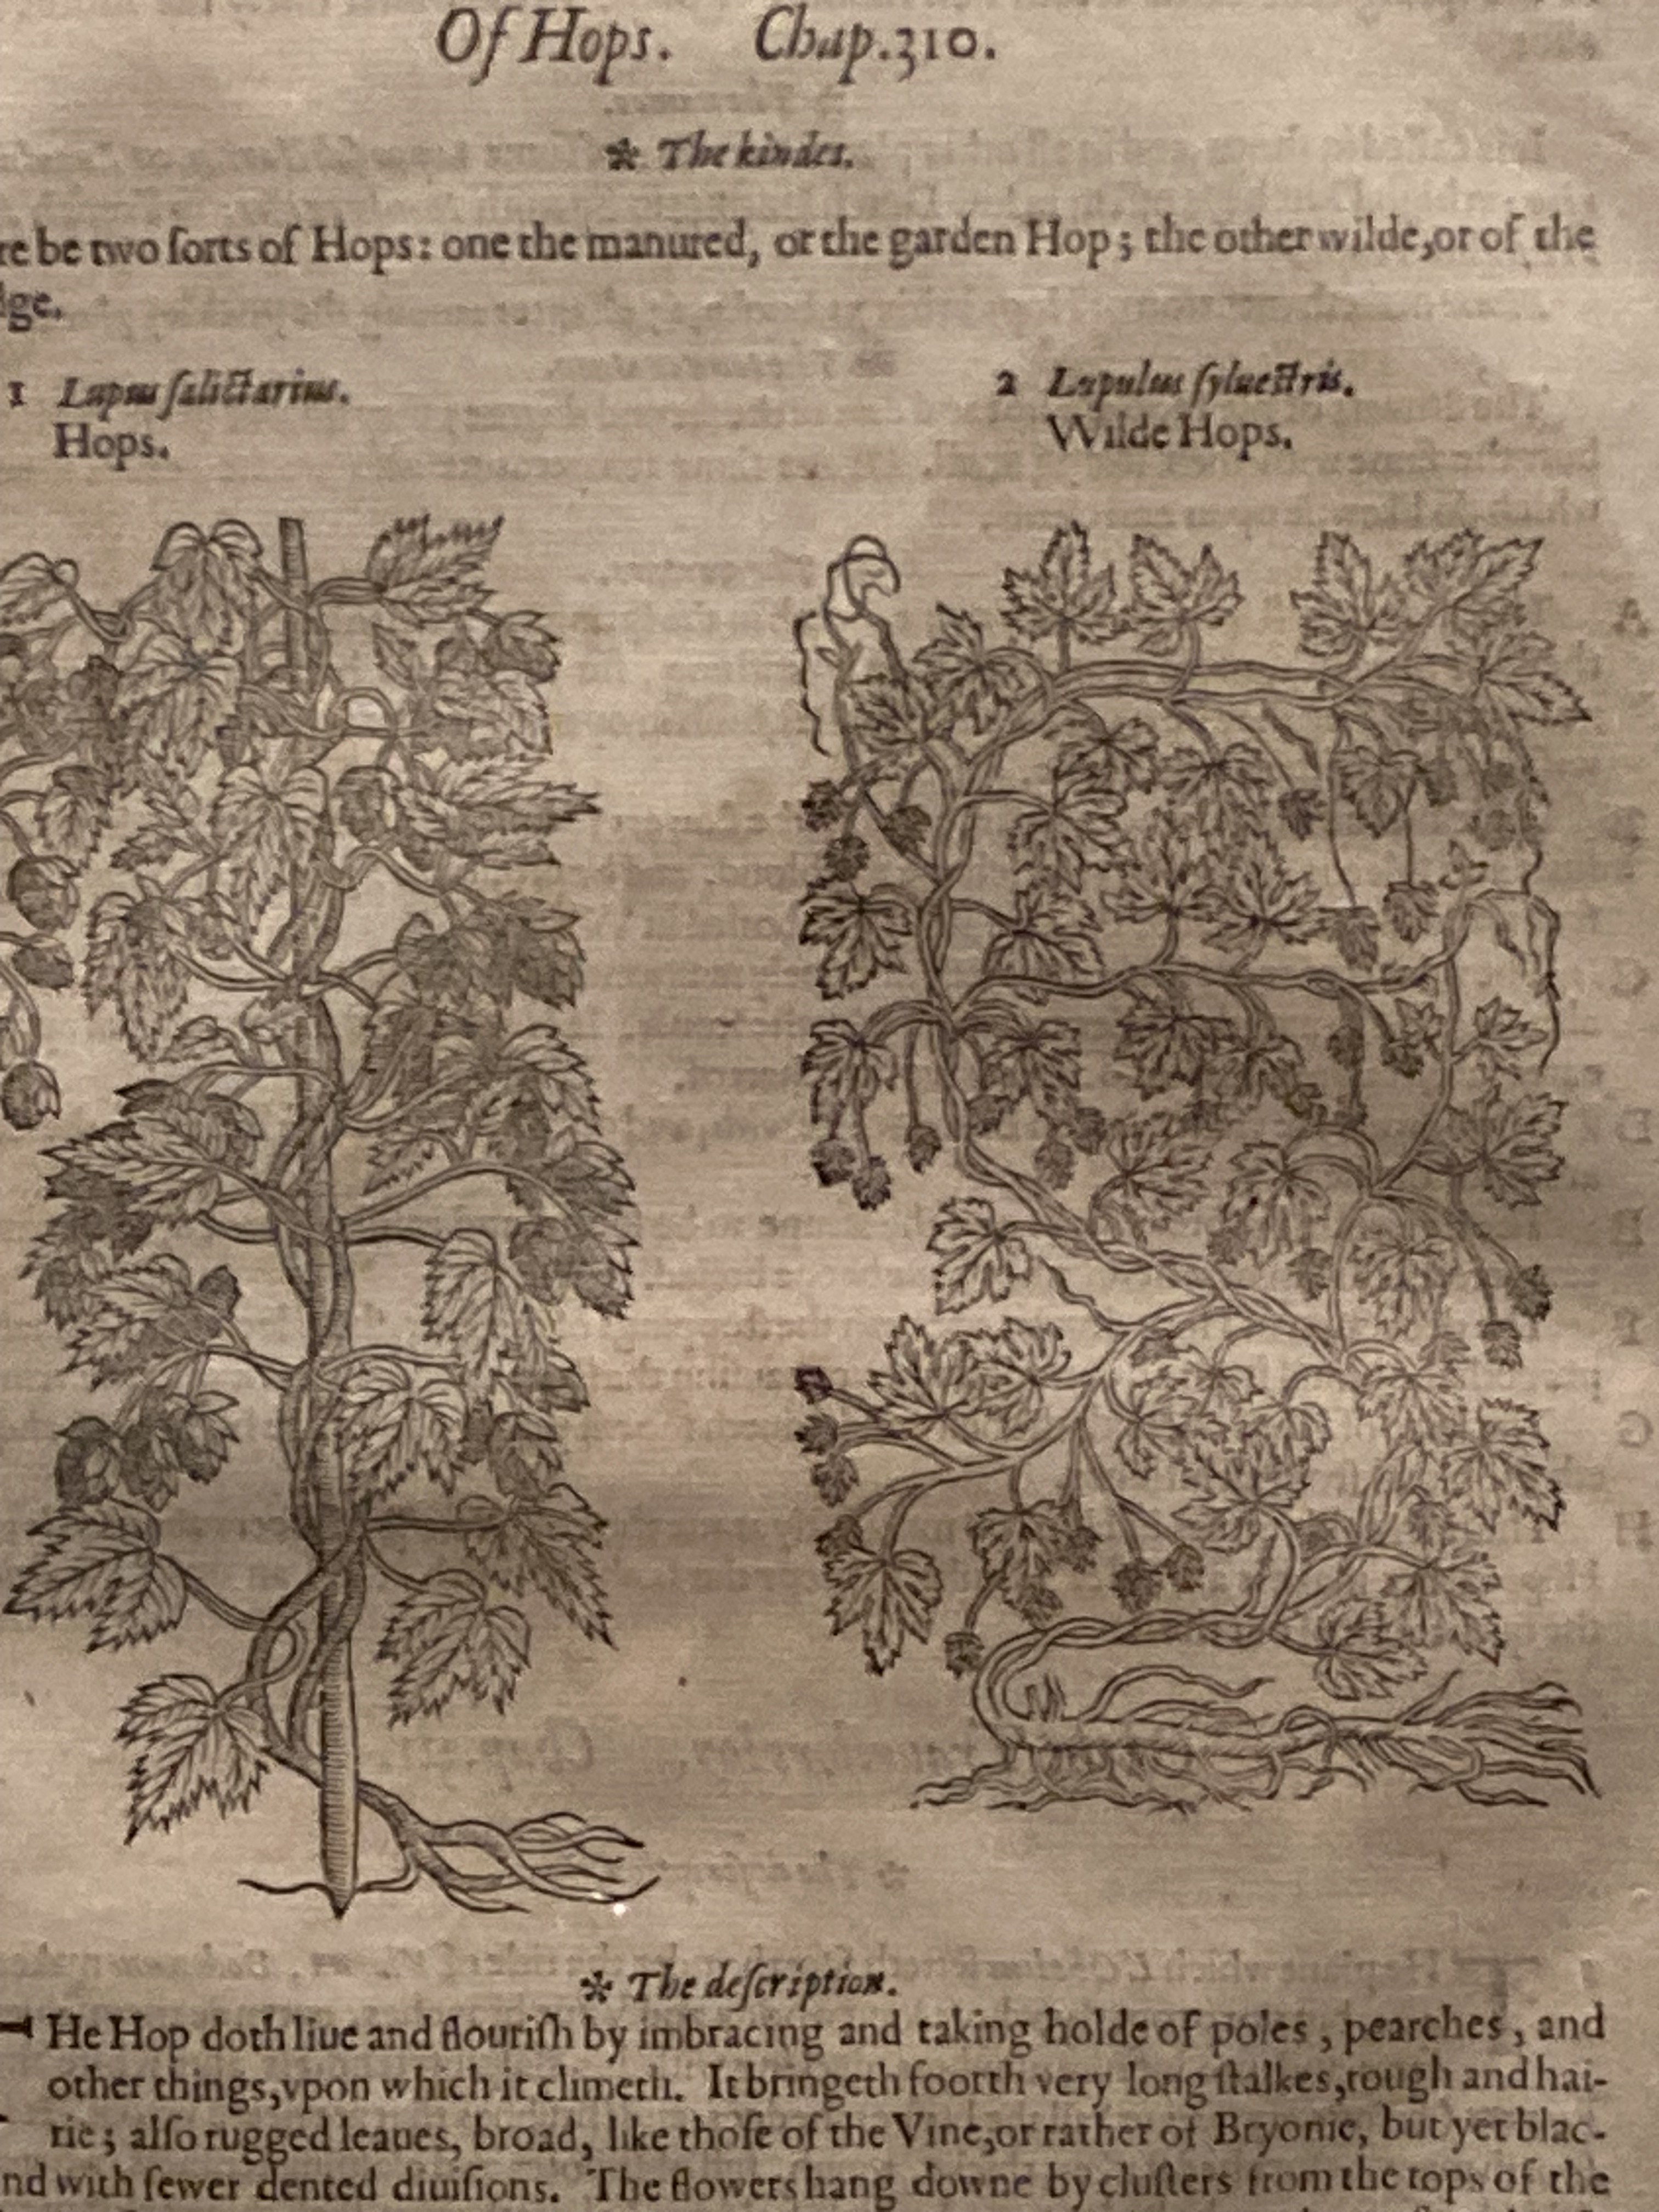 Of Hops. Chap.310.
✲ The kindes.
re be two ſorts of Hops: one the manured, or the garden Hop; the other wilde,or of the
dge.
1 Lupus ſalictarius.
Hops.
2 Lupulus ſylueſtris.
Wilde Hops.
✲ The deſcription.
THe Hop doth liue and flouriſh by imbracing and taking holde of poles, pearches, and
other things,vpon which it climeth. It bringeth foorth very long ſtalkes,rough and hai-
rie; alſo rugged leaues, broad, like thoſe of the Vine,or rather of Bryonie, but yet blac-
nd with fewer dented diuiſions. The flowers hang downe by cluſters from the tops of the